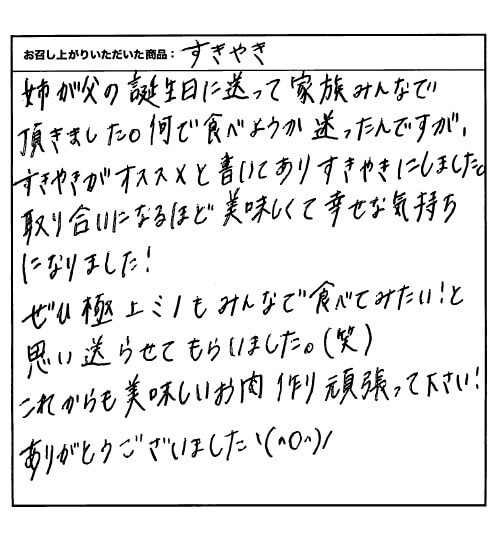 お召し上がりいただいた商品：すきやき
姉が父の誕生日に送って家族みんなで
頂きました。何で食べようか迷ったんですが、
すきやきがオススメと書いてありすきやきにしました。
取り合いになるほど美味しくて幸せな気持ち
になりました！
ぜひ極上ミノもみんなで食べてみたい！と
思い送らせてもらいました。(笑)
これからも美味しいお肉作り頑張って下さい！
ありがとうございましたヽ(^O^)ノ